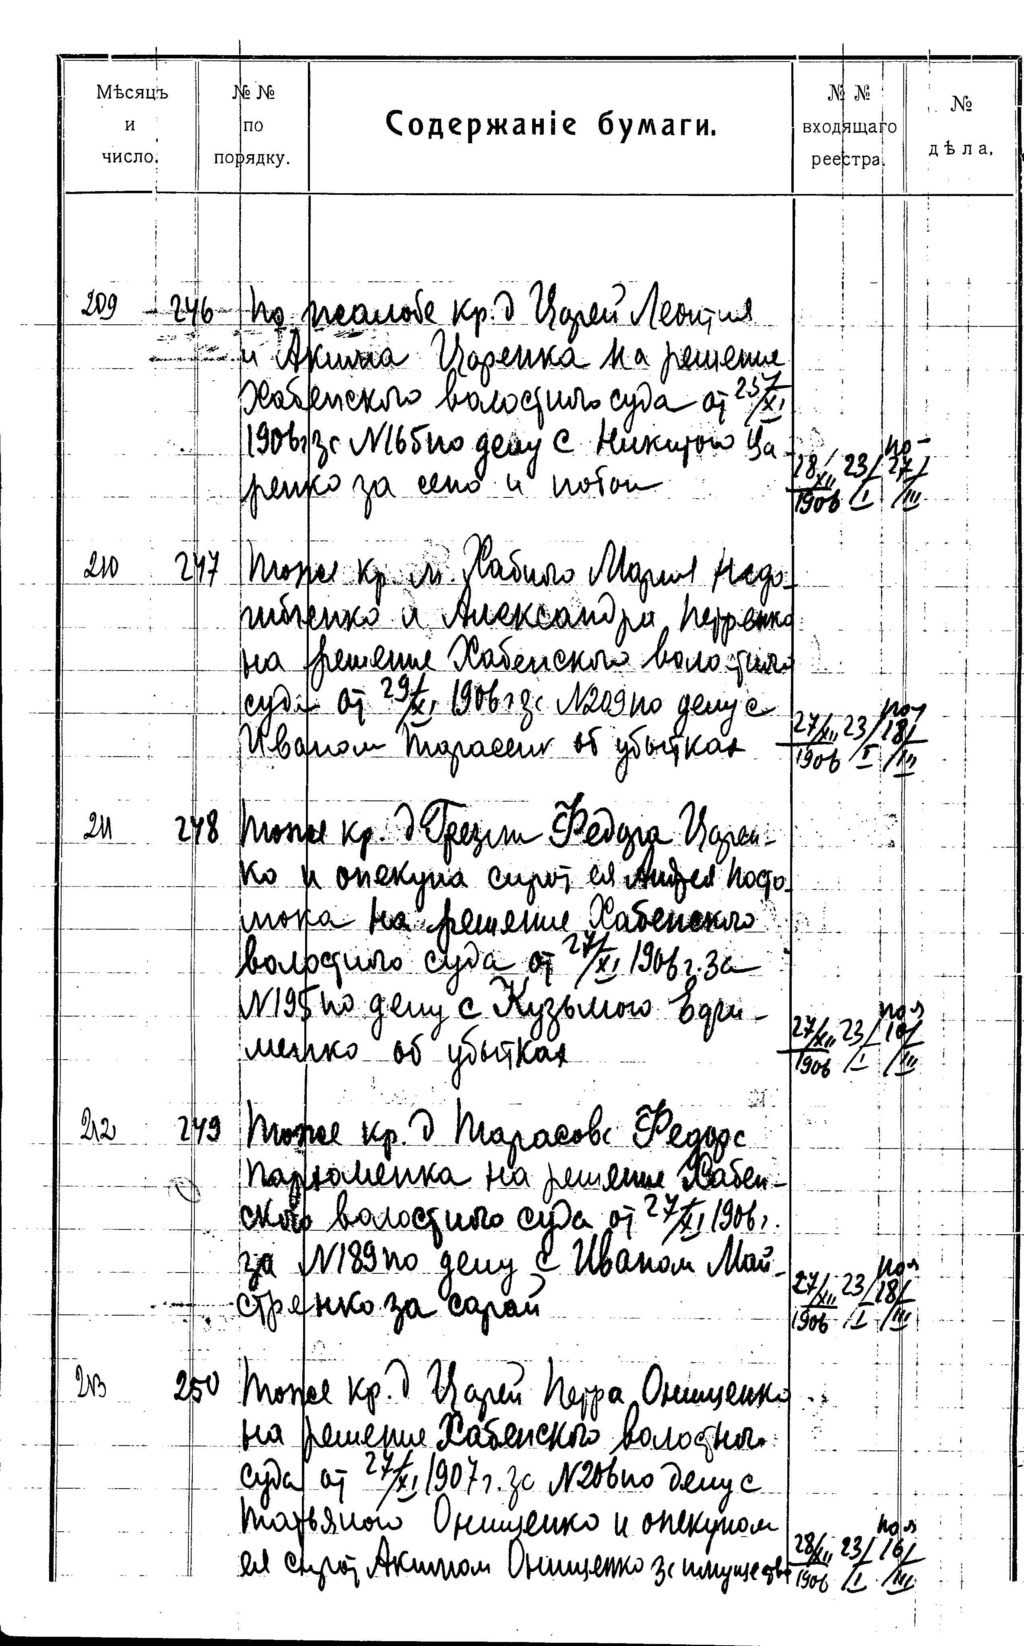 Мѣсяцъ и число.
№ № по порядку.
Содержаніе бумаги.
№ № входящаго реестра.
№ дѣла.
209 246 По жалобе кр. д Царей Леонтия
и Акима Царенка на решение
Хабенского волостного суда от 25/XI
1906 г за N165 по делу с Никитою Ца-
ренко за сено и потои
28/XII 1906 23/I 27/III
210 247 Тоже кр. м. Хабного Мария Надо-
чтенко и Александра Петренко
на решение Хабенского волостного
суда от 29/XI 1906 г за N209 по делу с
Иваном Тарасен об убытках
27/XII 1906 23/I 18/III
211 248 Тоже кр. д Грезли Федора Царен-
ко и опекуна сирот ея Андрея Посто-
мока на решение Хабенского
волостного суда от 27/XI 1906 г. за
N195 по делу с Кузьмою
об убытках
27/XII 1906 23/I 10/III
212 249 Тоже кр. д Тарасова Федора
Пархоменка на решение Хабен-
ского волостного суда от 27/XI 1906 г.
за N189 по делу с Иваном Май-
стренко за сарай
27/XII 1906 23/I 18/III
213 250 Тоже кр. д Царей Петра Онищенко
на решение Хабенского волостного
суда от 27/XI 1907 г. за N206 по делу с
Татьяного Онищенко и опекуном
ея сирот Акимом Онищенко за имущество
28/XII 1906 23/I 16/III